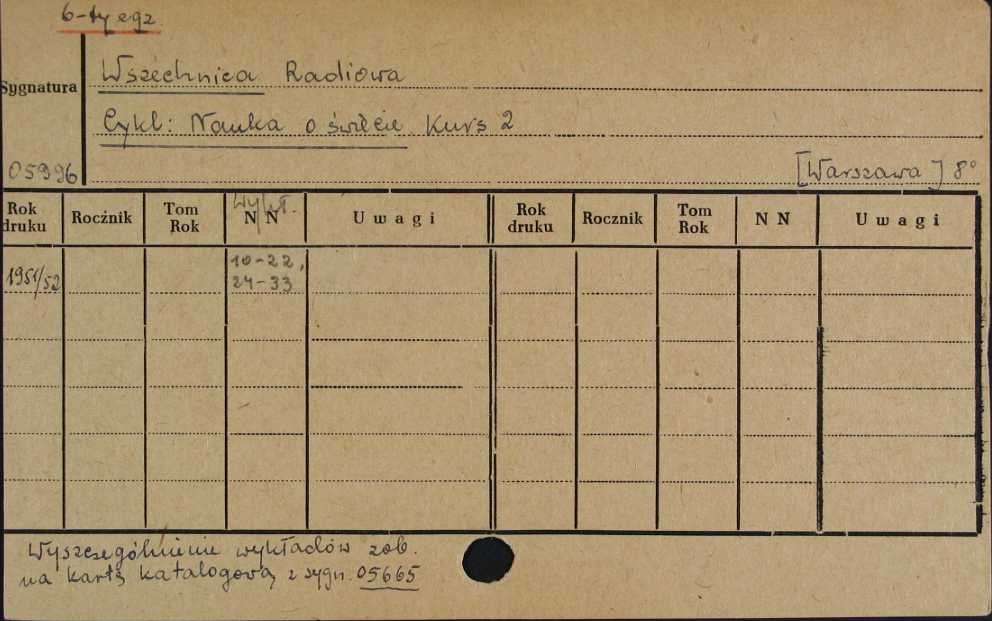 6-ty egz.
Sygnatura
Wszechnica Radiowa
Cykl: Nauka o świecie Kurs 2
05996
[Warszawa] 8°
Rok druku Rocznik Tom Rok Wykł. N N Uwagi Rok druku Rocznik Tom Rok N N Uwagi
1951/52 10-22,
24-33
Wyszczególnienie wykładów zob.
na kartę katalogową z sygn. 05665